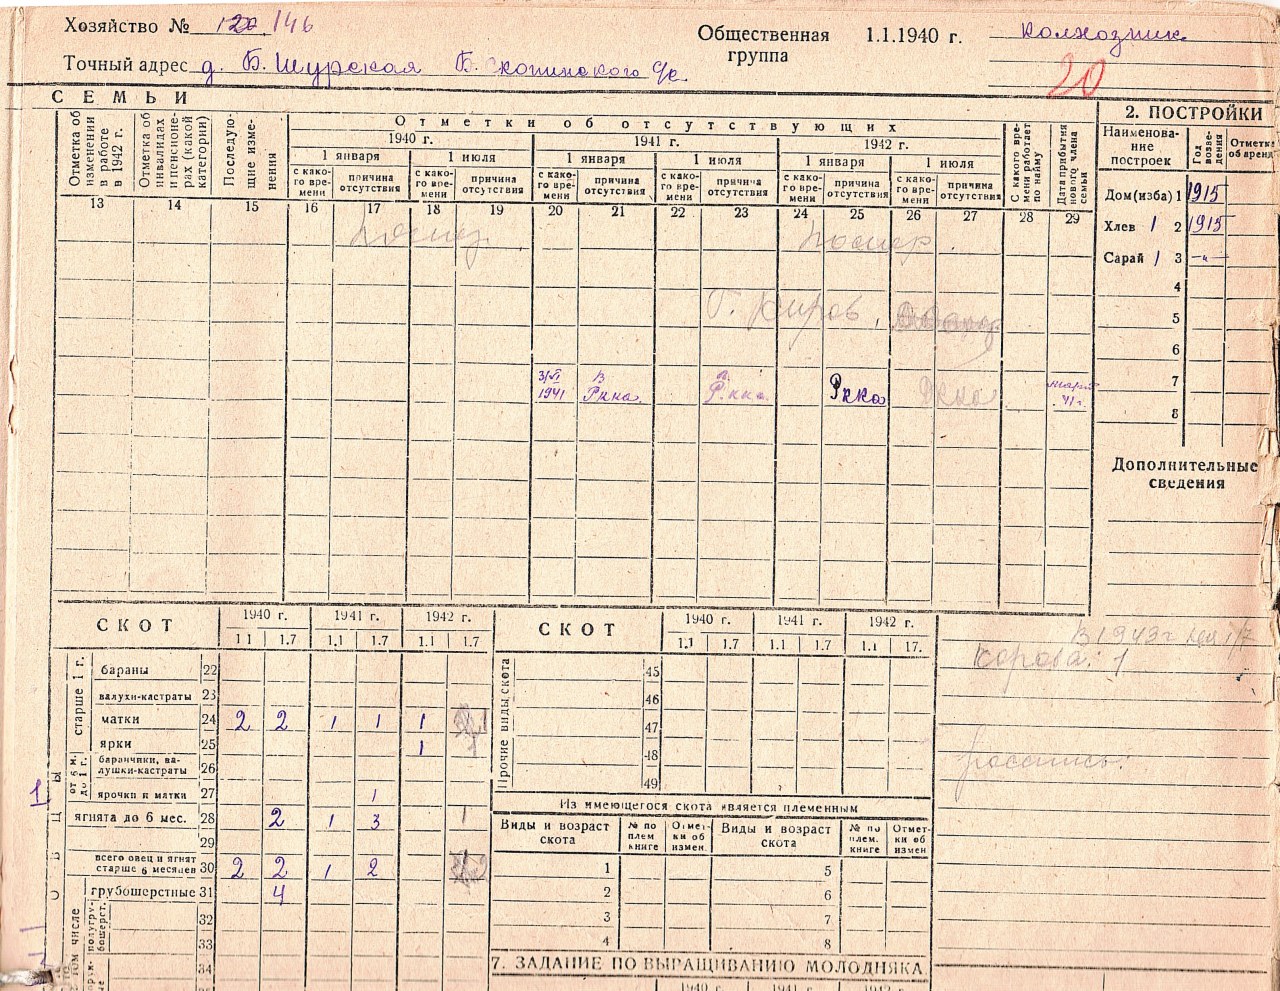 Хозяйство № 146
Общественная группа 1.1.1940 г. колхозник
Точный адрес д. Б. Шурская Б. Скопинского с/с.
20
СЕМЬИ
Отметки об отсутствующих
1940 г. 1941 г. 1942 г.
1 января 1 июля 1 января 1 июля 1 января 1 июля
Отметка об изменении в работе в 1942 г.
Отметка об инвалидах и пенсионерах (какой категории)
Последующие изменения
с какого времени причина отсутствия с какого времени причина отсутствия с какого времени причина отсутствия с какого времени причина отсутствия с какого времени причина отсутствия с какого времени причина отсутствия
С какого времени работает по найму
Дата прибытия нового члена семьи
13 14 15 16 17 18 19 20 21 22 23 24 25 26 27 28 29
г. Киров
1941 в Ркка. в Ркка. Ркка Ркка 41 г.
2. ПОСТРОЙКИ
Наименование построек Год возведения Отметка об аренд
Дом (изба) 1 1915
Хлев 1 2 1915
Сарай 1 3 —"—
4
5
6
7
8
Дополнительные сведения
СКОТ 1940 г. 1941 г. 1942 г.
1.1 1.7 1.1 1.7 1.1 1.7
ОВЦЫ
старше 1 г.
бараны 22
валухи-кастраты 23
матки 24 2 2 1 1 1
ярки 25 1
от 6 м. до 1 г.
баранчики, валушки-кастраты 26
ярочки и матки 27 1
ягнята до 6 мес. 28 2 1 3 1
29
всего овец и ягнят старше 6 месяцев 30 2 2 1 2
в том числе
грубошерстные 31 4
полугрубошерст. 32
33
34
СКОТ 1940 г. 1941 г. 1942 г.
1.1 1.7 1.1 1.7 1.1 17.
Прочие виды скота
45
46
47
48
49
Из имеющегося скота является племенным
Виды и возраст скота № по плем книге Отметки об измен. Виды и возраст скота № по плем. книге Отметки об измен
1 5
2 6
3 7
4 8
7. ЗАДАНИЕ ПО ВЫРАЩИВАНИЮ МОЛОДНЯКА
1940 г. 1941 г. 1942 г.
В 1943 г
корова. 1
роспись: